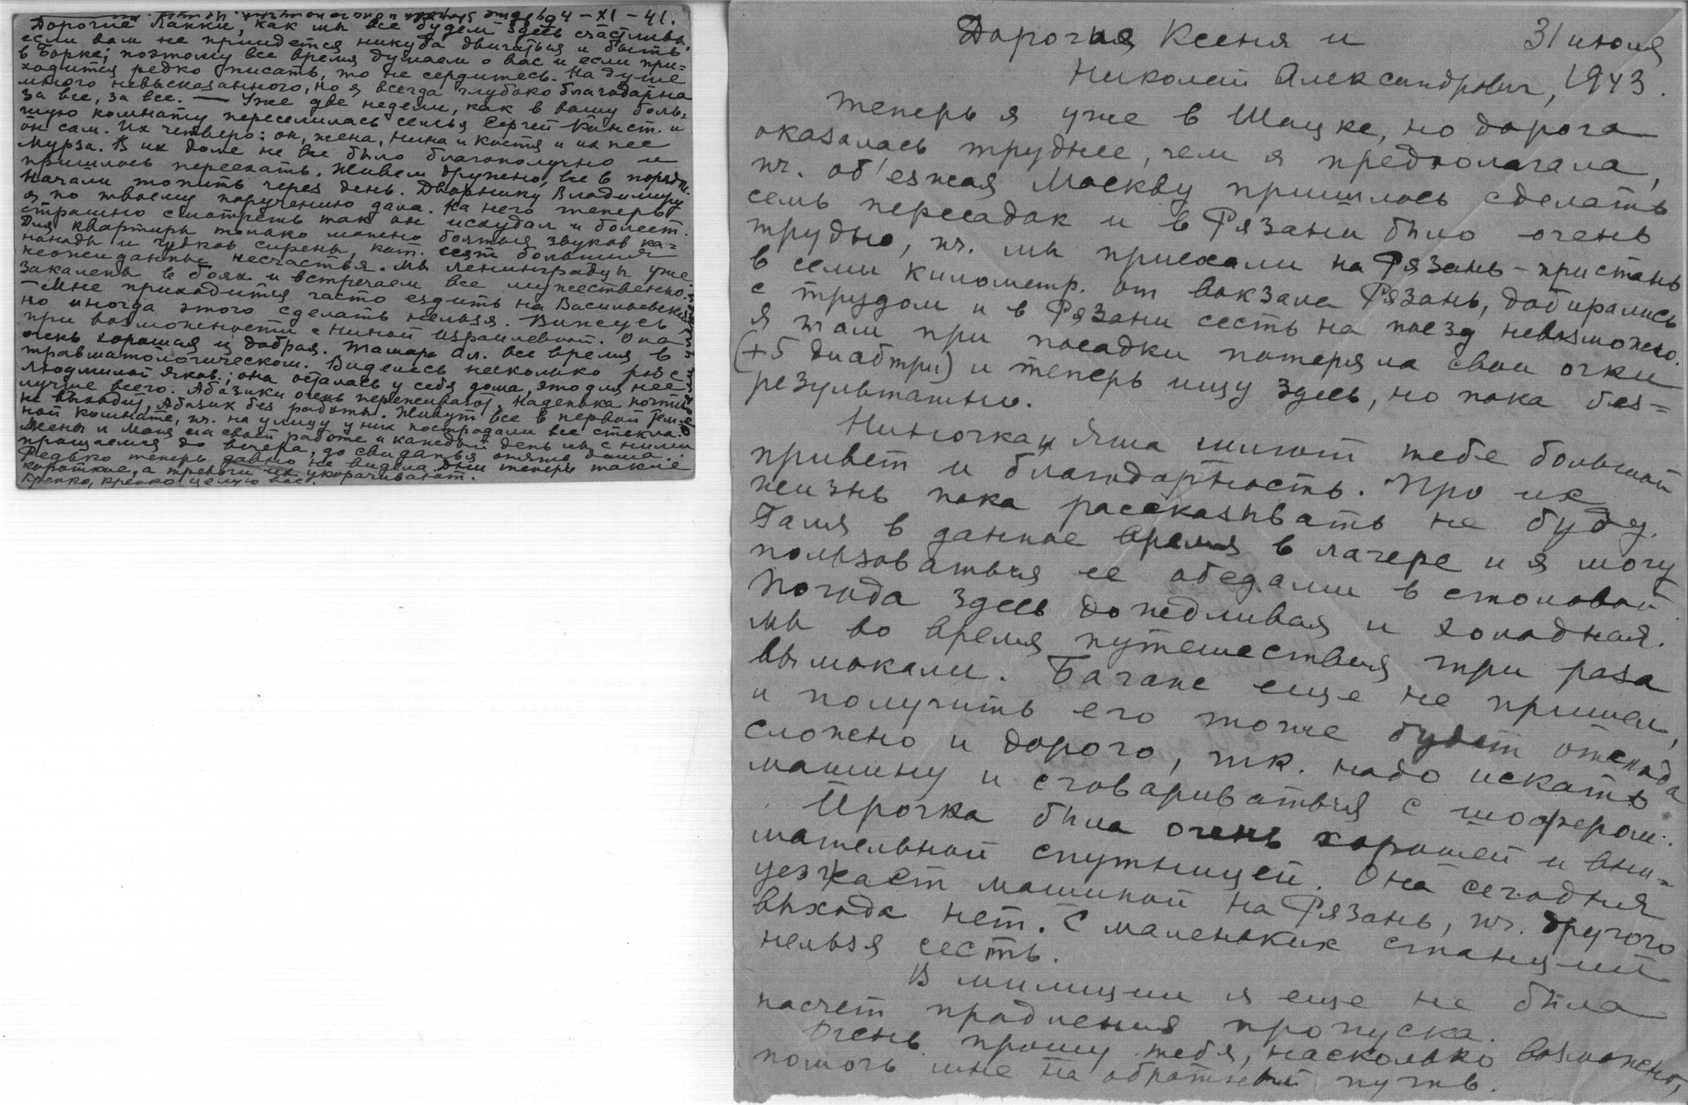 4-XI-41.
Дорогие Ляпки, как мы все будем здесь счастливы,
если вам не придется никуда двигаться и быть
в Борке; поэтому все время думаем о вас и если при-
ходится редко писать, то не сердитесь. На душе
много невысказанного, но я всегда глубоко благодарна
за все, за все. — Уже две недели, как в вашу боль-
шую комнату переселилась семья Сергей Конст. и
он сам. Их четверо: он, жена, Нина и Костя и их пес
Мурза. В их доме не все было благополучно и
пришлось переехать. Живем дружно, все в порядке.
Начали топить через день. Дворнику Владимиру
я по твоему поручению дала. На него теперь
страшно смотреть так он исхудал и болеет.
Для квартиры только можно бояться звуков ка-
нонады и гудков сирены, кот. сеят большия
неожиданные несчастья. Мы ленинградцы уже
закалены в боях и встречаем все мужественно.
— Мне приходится часто ездить на Васильевский
но иногда этого сделать нельзя. Вижусь
при возможности с Ниной Израилевной. Она
очень хорошая и добрая. Тамара Ал. все время в
травматологическом. Виделась несколько раз с
Людмилой Яков.; она осталась у себя дома, это для нее
лучше всего. Абазики очень переживают, Наденька почти
не выходит, Абазик без работы. Живут все в первой тем-
ной комнате, пч. на улицу у них пострадали все стекла.
Жены и Маня на своей работе и каждый день мы с ними
прощаемся до вечера, до свиданья опять дома.
Федько теперь давно не видела. Дни теперь такие
короткие, а тревоги их укорачивают.
Крепко, крепко целую вас.
Дорогая Ксеня и 31 июля
Николай Александрович, 1943.
Теперь я уже в Шацке, но дорога
оказалась труднее, чем я предполагала,
пч. об'езжая Москву пришлось сделать
семь пересадок и в Рязани было очень
трудно, пч. мы приехали на Рязань-пристань
в семи километр. от вокзала Рязань, добирались
с трудом и в Рязани сесть на поезд невозможно.
Я там при посадки потеряла свои очки
(+5 диабтри) и теперь ищу здесь, но пока без-
результатно.
Ниночка и Яша шлют тебе большой
привет и благодарность. Про их
жизнь пока рассказывать не буду.
Галя в данное время в лагере и я могу
пользоваться ее обедами в столовой
Погода здесь дождливая и холодная.
мы во время путешествия три раза
вымокали. Багаж еще не пришел,
и получить его тоже будет отсюда
сложно и дорого, тк. надо искать
машину и сговариваться с шофером.
Ирочка была очень хорошей и вни-
мательной спутницей. Она сегодня
уезжает машиной на Рязань, пч. другого
выхода нет. С маленьких станций
нельзя сесть.
В милиции я еще не была
насчет продления пропуска.
Очень прошу тебя, насколько возможно,
помочь мне на обратный путь.